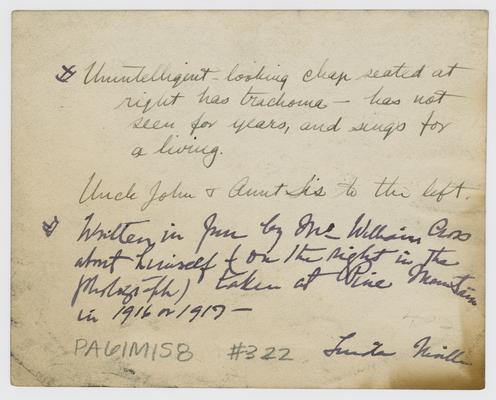 Unintelligent-looking chap seated at
right has trachoma — has not
seen for years, and sings for
a living.
Uncle John & Aunt Sis to the left.
Written in fun by Mr William Cross
about himself (on the right in the
photograph) taken at Pine Mountain
in 1916 or 1917—
PA61M158 #322 Linda Neville